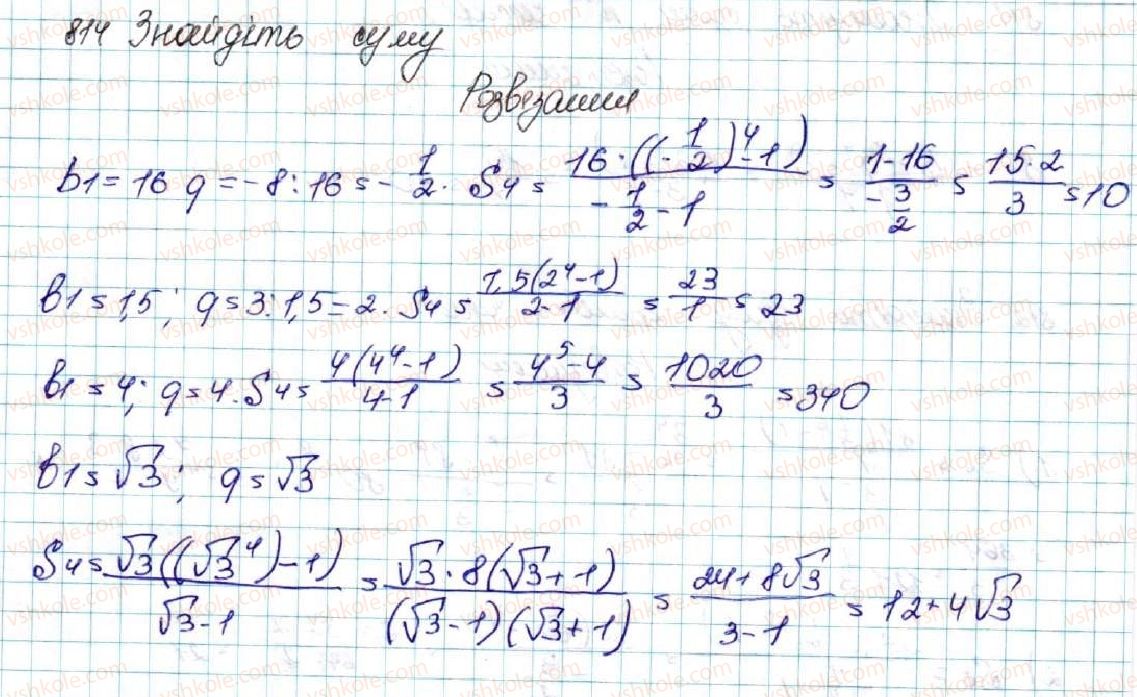 814 Знайдіть суму
Розвезання
b1 = 16 q = -8 : 16 = -1/2. S4 = 16·((-1/2)^4-1)/(-1/2-1) = (1-16)/(-3/2) = 15·2/3 = 10
b1 = 1,5; q = 3:1,5 = 2. S4 = 1,5(2^4-1)/(2-1) = 23/1 = 23
b1 = 4; q = 4. S4 = 4(4^4-1)/(4-1) = (4^5-4)/3 = 1020/3 = 340
b1 = √3; q = √3
S4 = √3((√3^4)-1)/(√3-1) = √3·8(√3+1)/((√3-1)(√3+1)) = (24+8√3)/(3-1) = 12+4√3